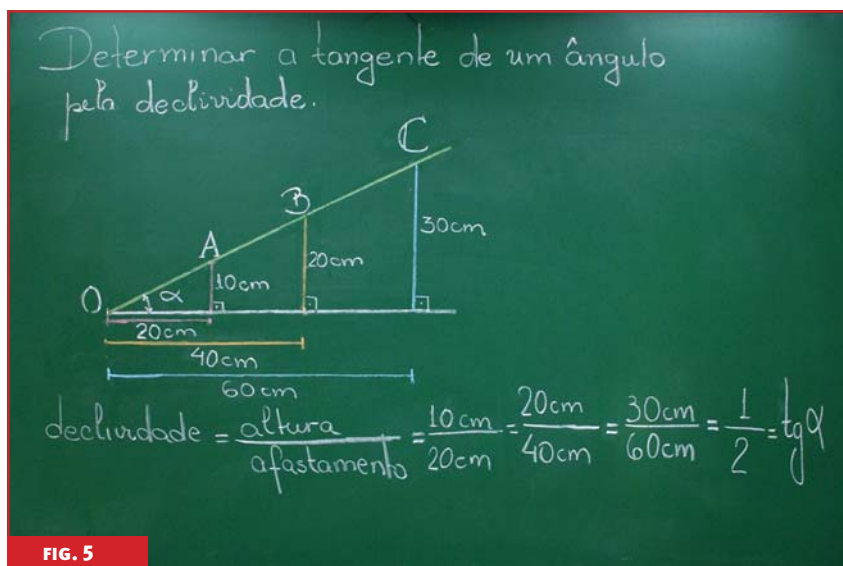 Determinar a tangente de um ângulo
pela declividade.
C
B
A
30cm
20cm
10cm
O
α
20cm
40cm
60cm
declividade = altura / afastamento = 10cm / 20cm = 20cm / 40cm = 30cm / 60cm = 1 / 2 = tg α
FIG. 5